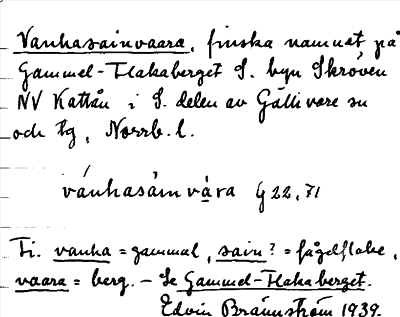 Vanhasainvaara, finska namnet på
Gammel-Flakaberget S. byn Skröven
NV Kattån i S. delen av Gällivare sn
och tg, Norrb. l.
vánhasàinvàra G 22, 71
Fi. vanha = gammal, sain? = fågelflake,
vaara = berg. - Se Gammel-Flakaberget.
Edvin Brännström 1939.